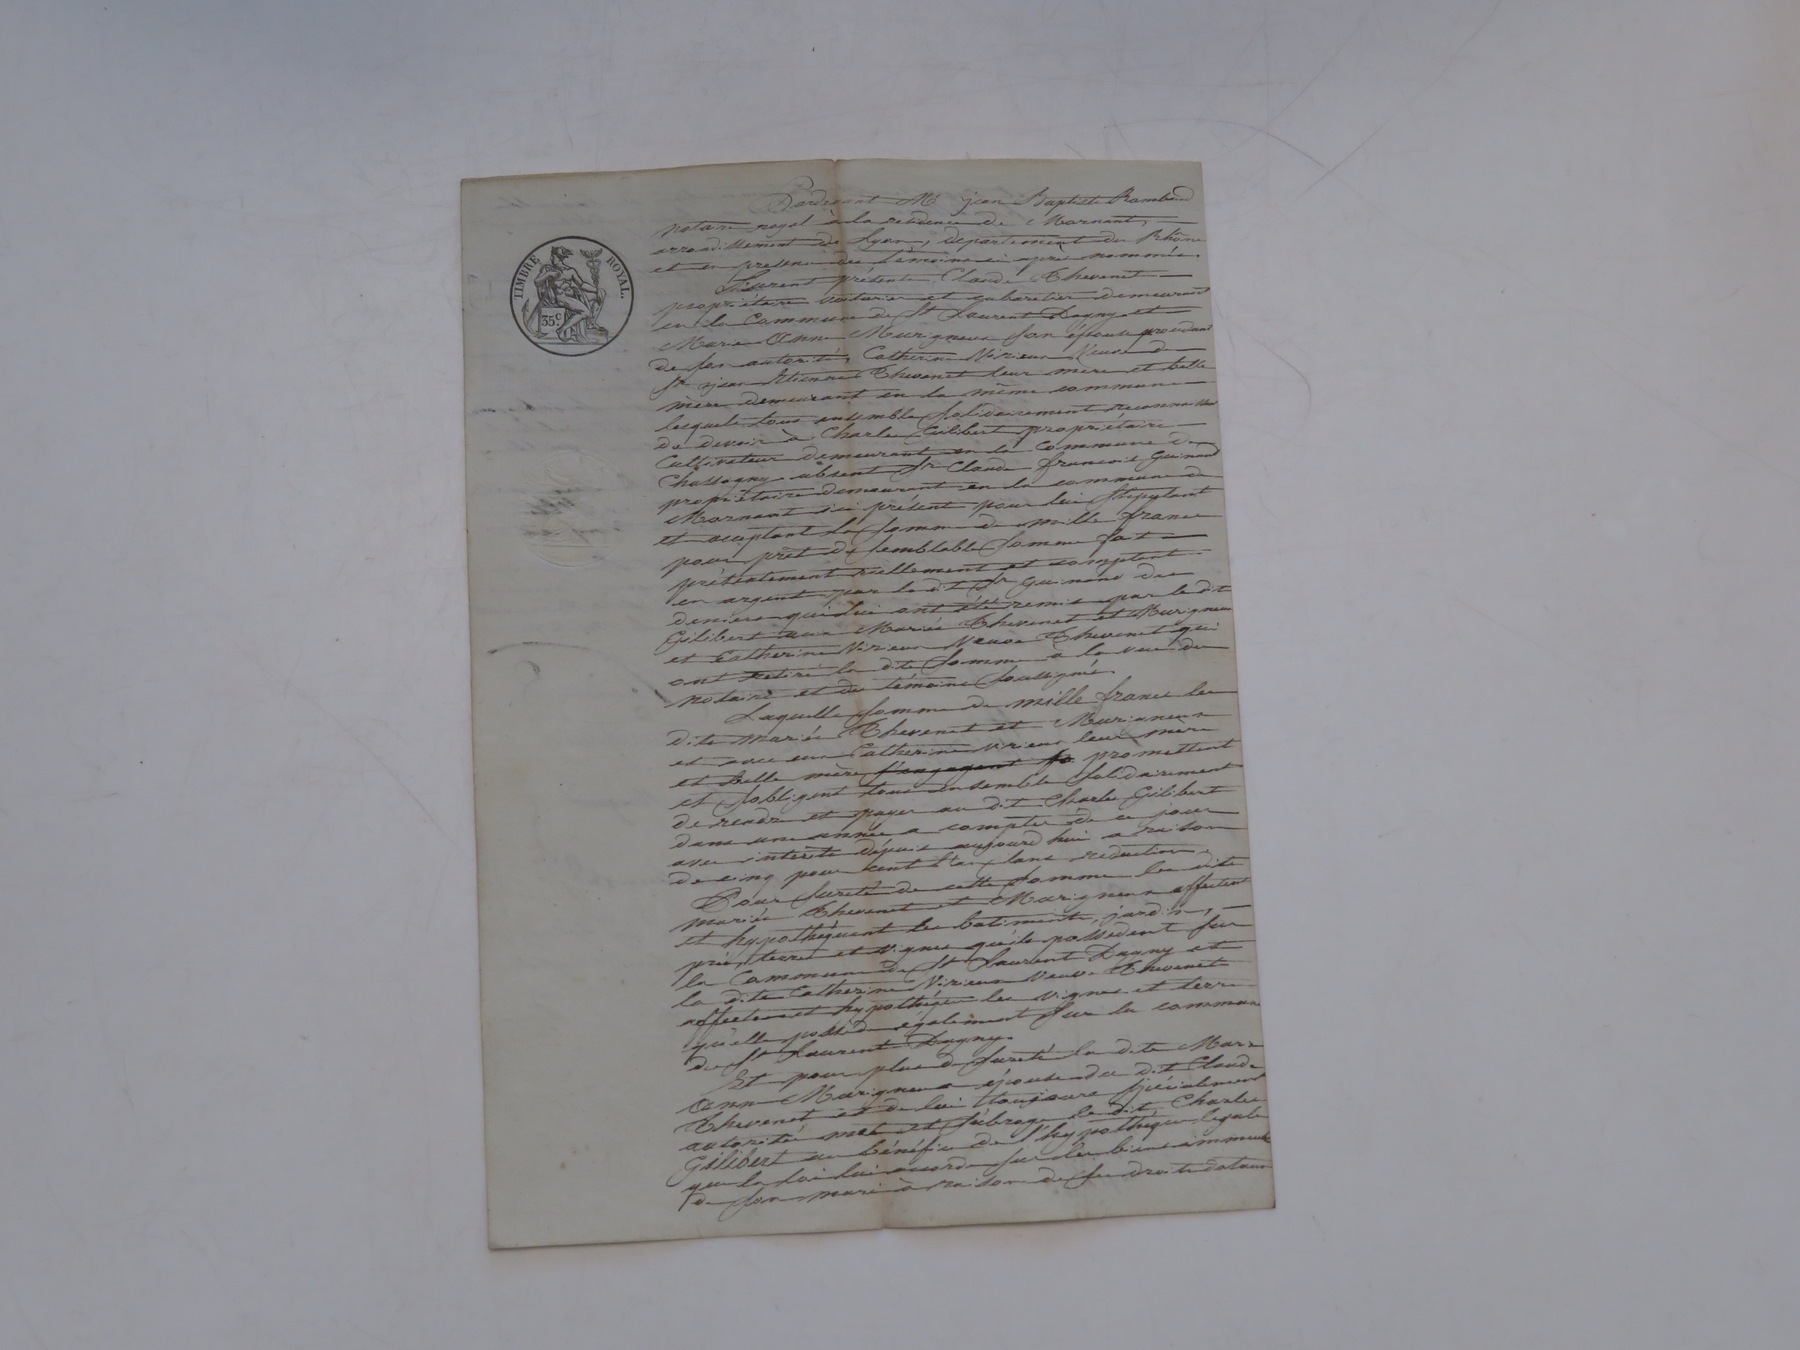 TIMBRE ROYAL.
35 c.
Pardevant Me jean Baptiste Rambaud
notaire royal à la residence de Mornant,
arrondissement de Lyon, departement du Rhône
et en presence des témoins ci après nommés.
Furent présents Claude Thevenet
propriétaire voiturier et cabaretier demeurant
en la Commune de St Laurent Dagny et
Marie Anne Murigneux son épouse procédant
de son autorité, Catherine Virieux Veuve de
Sr jean Etienne Thevenet leur mère et belle
mère demeurant en la même commune
lesquels tous ensemble solidairement reconnaissent
de devoir à Charles Gilibert propriétaire
Cultivateur demeurant en la Commune de
Chassagny absent Sr Claude françois Guinand
propriétaire demeurant en la commune de
Mornant ici présent pour lui stipulant
et acceptant la somme de mille francs
pour prêt de semblable somme fait
présentement réellement et comptant
en argent par le dit Sr Guinand des
deniers qui lui ont été remis par le dit
Gilibert aux Mariés Thevenet et Murigneux
et Catherine Virieux Veuve Thevenet qui
ont retiré la dite somme à la vue du
notaire et des témoins soussignés.
Laquelle somme de mille francs les
dits mariés Thevenet et Murigneux
et avec eux Catherine Virieux leur mère
et belle mère s'engagent promettent
et s'obligent tous ensemble solidairement
de rendre et payer au dit Charles Gilibert
dans une année a compter de ce jour
avec intérêts dépuis aujourd'hui a raison
de cinq pour cent l'an sans réduction.
Pour sureté de cette somme les dits
mariés Thevenet et Murigneux affectent
et hypothèquent les batiments, jardin,
prés, terres et vignes qu'ils possèdent sur
la Commune de St Laurent Dagny et
la dite Catherine Virieux Veuve Thevenet
affecte et hypothéque les vignes et terres
qu'elle possède également sur la commune
de St Laurent Dagny.
Et pour plus de sureté la dite Marie
Anne Murigneux épouse du dit Claude
Thevenet et de lui toujours spécialement
autorisée met et subroge le dit Charles
Gilibert au bénéfice de l'hypothèque légale
que la loi lui accorde sur les biens immeubles
de son mari à raison de ses droits dotaux